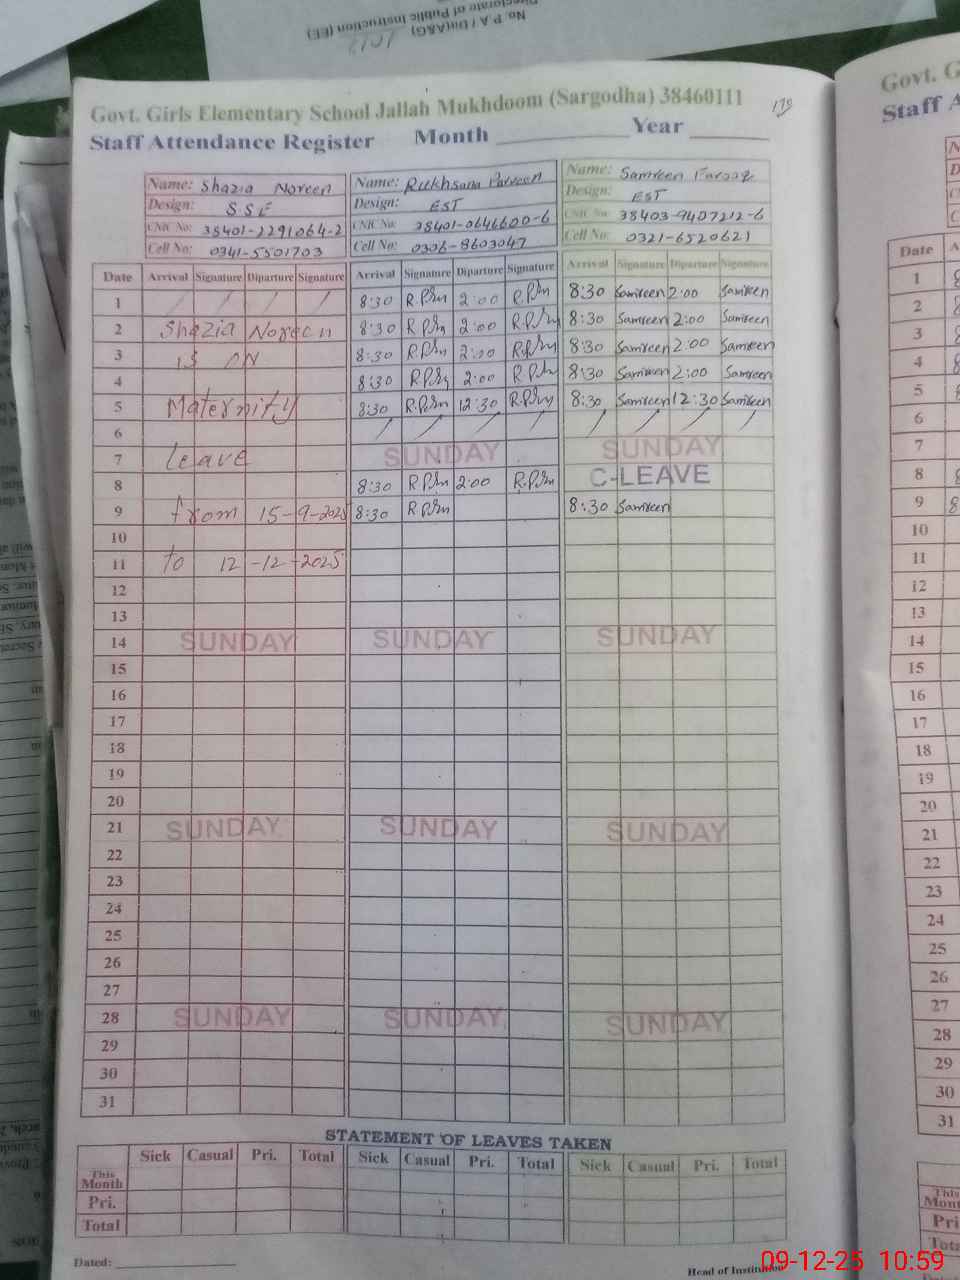 Directorate of Public Instruction (EE)
No. P.A / Dir(A&G)
Govt. Girls Elementary School Jallah Mukhdoom (Sargodha) 38460111
Staff Attendance Register Month Year
Name: Shazia Noreen Name: Rukhsana Parveen Name: Samreen Farooq
Design: SSE Design: EST Design: EST
CNIC No: 38401-2291064-2 CNIC No: 38401-0646600-6 CNIC No: 38403-9407212-6
Cell No: 0341-5501703 Cell No: 0306-8603047 Cell No: 0321-6520621
Date Arrival Signature Diparture Signature Arrival Signature Diparture Signature Arrival Signature Diparture Signature
1 8:30 2:00 8:30 Samreen 2:00 Samreen
2 Shazia Noreen 8:30 2:00 8:30 Samreen 2:00 Samreen
3 is on 8:30 2:00 8:30 Samreen 2:00 Samreen
4 8:30 2:00 8:30 Samreen 2:00 Samreen
5 Maternity 8:30 12:30 8:30 Samreen 12:30 Samreen
6
7 leave SUNDAY SUNDAY
8 8:30 2:00 C-LEAVE
9 from 15-9-2025 8:30 8:30 Samreen
10
11 to 12-12-2025
12
13
14 SUNDAY SUNDAY SUNDAY
15
16
17
18
19
20
21 SUNDAY SUNDAY SUNDAY
22
23
24
25
26
27
28 SUNDAY SUNDAY SUNDAY
29
30
31
STATEMENT OF LEAVES TAKEN
Sick Casual Pri. Total Sick Casual Pri. Total Sick Casual Pri. Total
This Month
Pri.
Total
Dated:
Head of Institution
Govt. G
Staff A
Date
1
2
3
4
5
6
7
8
9
10
11
12
13
14
15
16
17
18
19
20
21
22
23
24
25
26
27
28
29
30
31
This
Pri
09-12-25 10:59